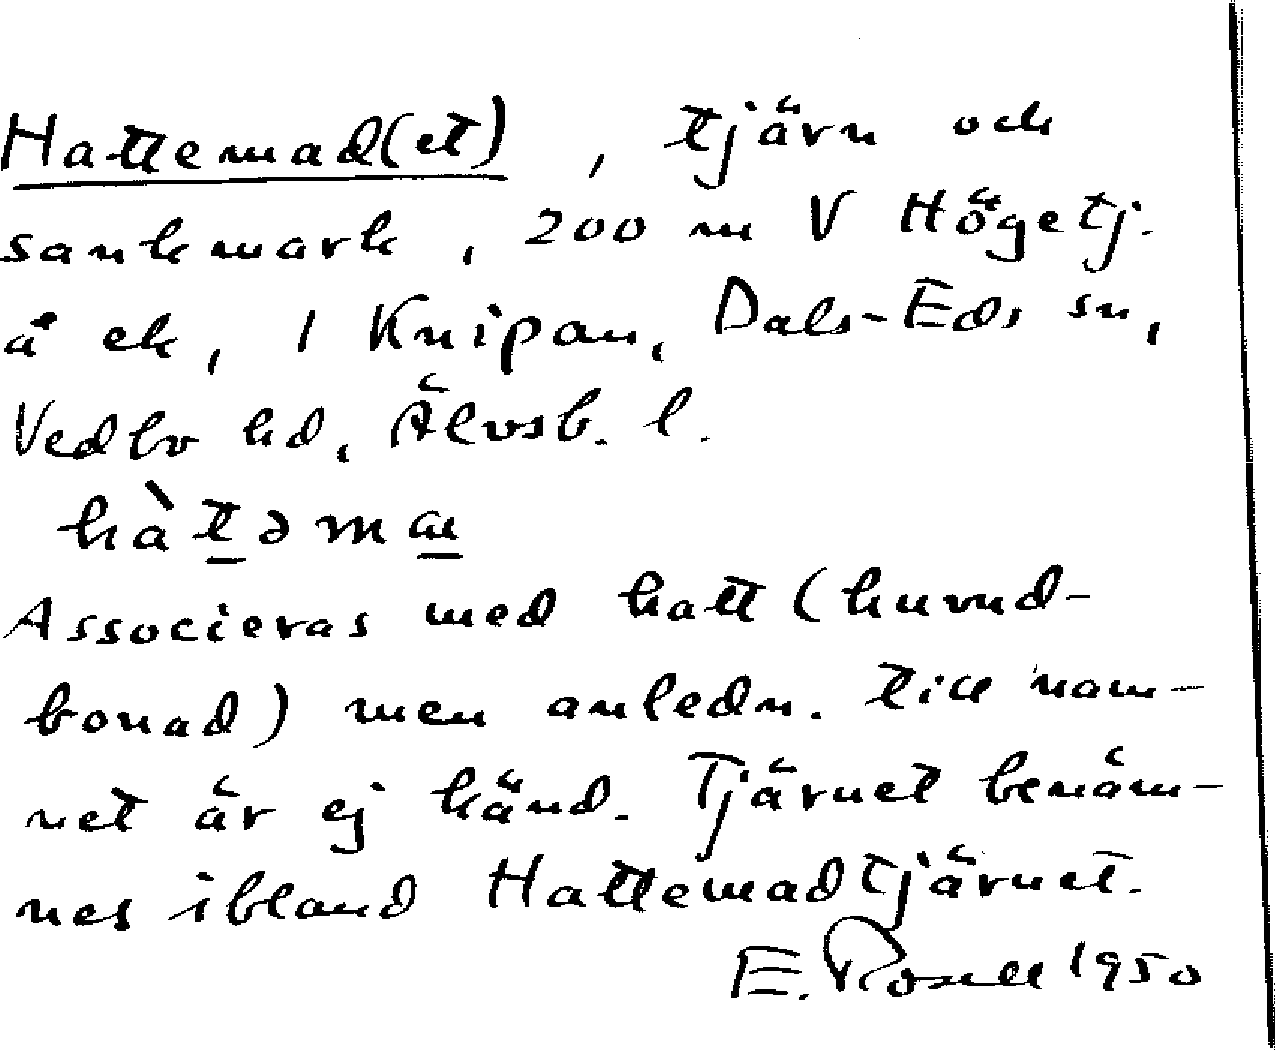 Hattemad(et), tjärn och
sankmark, 200 m V Högetj.
å ek, 1 Knipan, Dals-Eds sn,
Vedbo hd, Älvsb. l.
hàt̲əmæ̲
Associeras med hatt (huvud-
bonad) men anledn. till nam-
net är ej känd. Tjärnet benäm-
nes ibland Hattemadtjärnet.
E. Rosell 1950